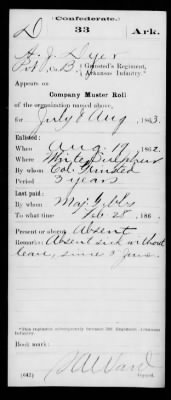 Confederate.
D 33 Ark.
H. J. Dyer
Pvt Co. B, Grinsted's Regiment,
Arkansas Infantry.*
Appears on
Company Muster Roll
of the organization named above,
for July & Aug, 1863.
Enlisted:
When Aug 19, 1862.
Where White Sulphur
By whom Col. Grinsted
Period 3 years
Last paid:
By whom Maj. Gibbs
To what time Feb. 28, 186 .
Present or absent Absent
Remarks: Absent sick without
leave, since 5 June.
*This regiment subsequently became 33d Regiment Arkansas
Infantry.
Book mark:
(642) Copyist.